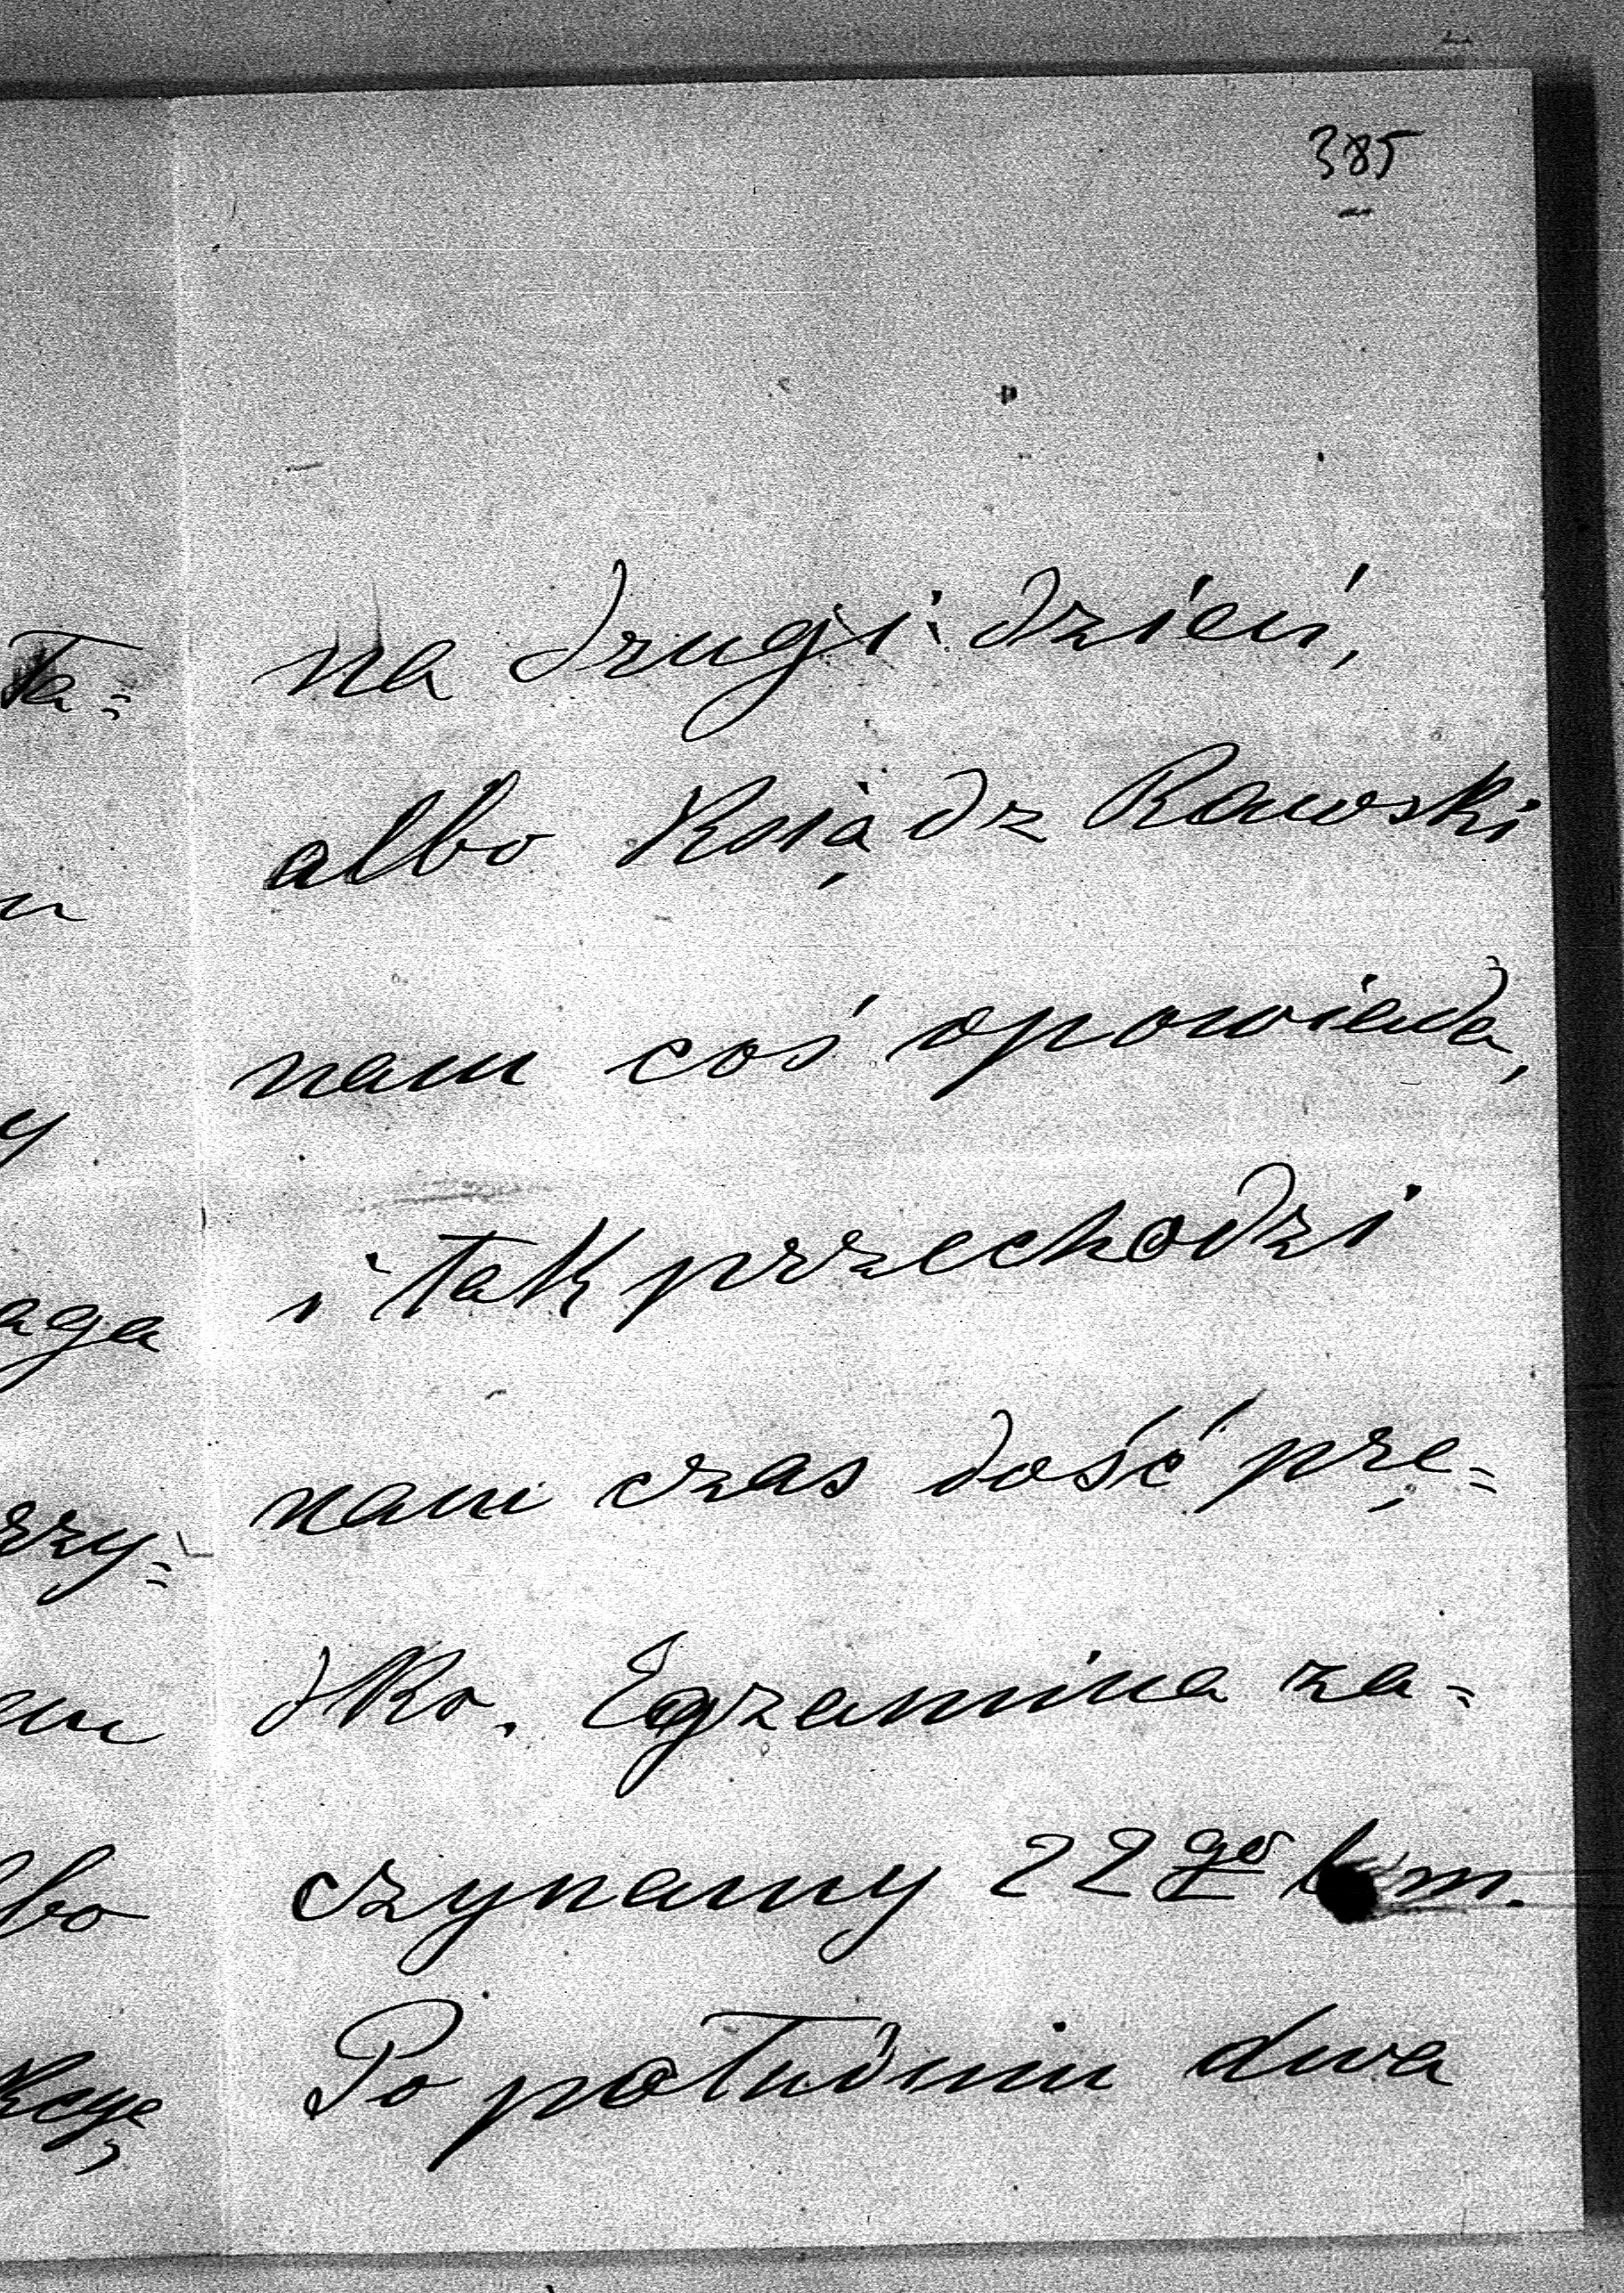 385
na drugi dzień,
albo Ksiądz Rawski
nam coś opowieda,
i tak przechodzi
nam czas dość prę=
dko. Egzamina za=
czynamy 22go b m.
Po południu dwa
Ta=
y
aga
rzy=
lbo
kcyę